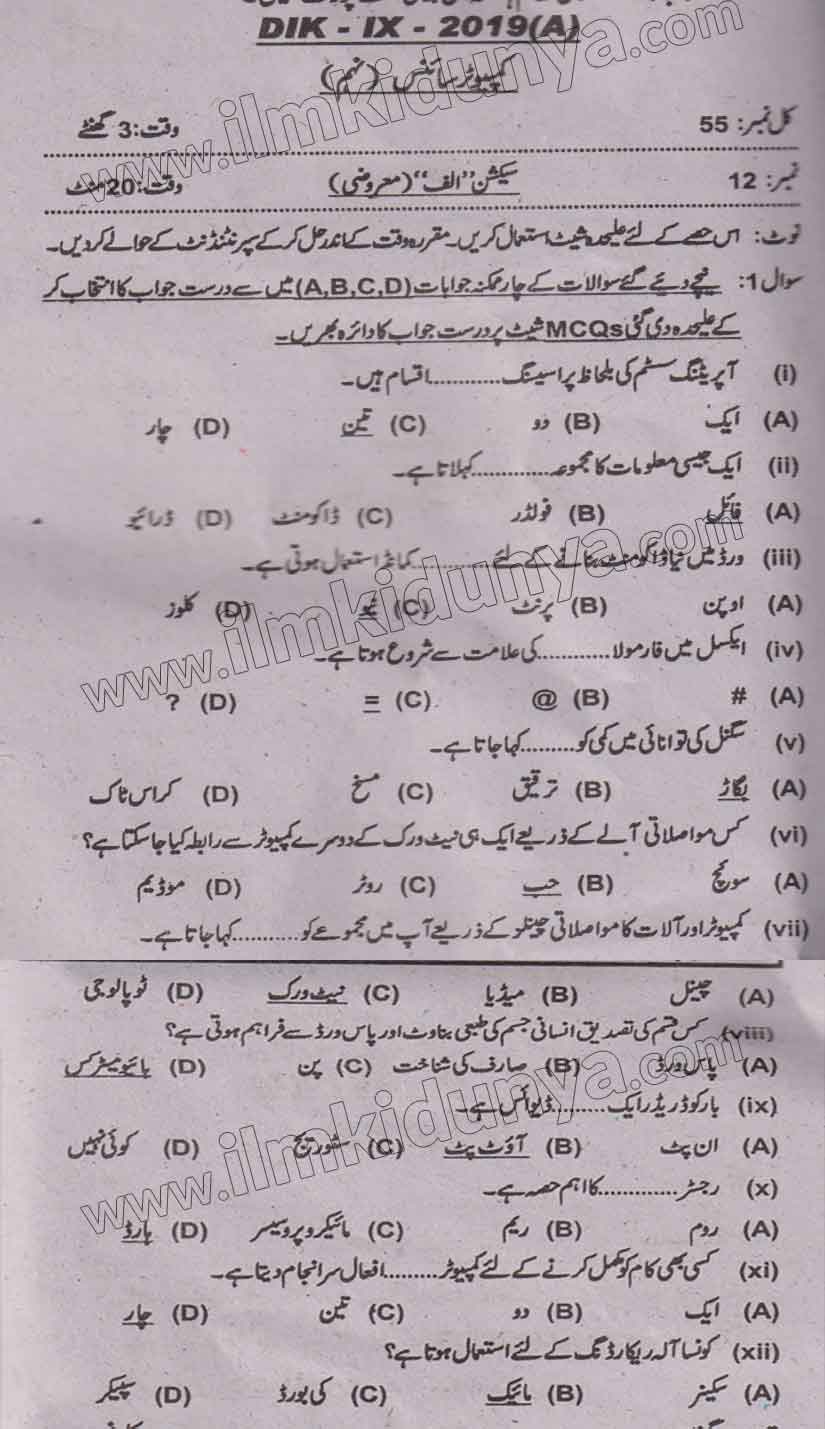 DIK - IX - 2019(A)
کمپیوٹر سائنس (نہم)
کل نمبر: 55 وقت: 3 گھنٹے
نمبر: 12 سیکشن "الف" (معروضی) وقت: 20 منٹ
نوٹ: اس حصے کے لئے علیحدہ شیٹ استعمال کریں۔ مقررہ وقت کے اندر حل کر کے سپرنٹنڈنٹ کے حوالے کر دیں۔
سوال 1: نیچے دیئے گئے سوالات کے چار ممکنہ جوابات (A,B,C,D) میں سے درست جواب کا انتخاب کر
کے علیحدہ دی گئی MCQs شیٹ پر درست جواب کا دائرہ بھریں۔
(i) آپریٹنگ سسٹم کی بلحاظ پراسیسنگ ........... اقسام ہیں۔
(A) ایک (B) دو (C) تین (D) چار
(ii) ایک جیسی معلومات کا مجموعہ ........... کہلاتا ہے۔
(A) فائل (B) فولڈر (C) ڈاکومنٹ (D) ڈرائیو
(iii) ورڈ میں نیا ڈاکومنٹ بنانے کے لئے ........... کمانڈ استعمال ہوتی ہے۔
(A) اوپن (B) پرنٹ (C) نیو (D) کلوز
(iv) ایکسل میں فارمولا ........... کی علامت سے شروع ہوتا ہے۔
(A) # (B) @ (C) = (D) ?
(v) سگنل کی توانائی میں کمی کو ......... کہا جاتا ہے۔
(A) بگاڑ (B) ترقیق (C) مسخ (D) کراس ٹاک
(vi) کس مواصلاتی آلے کے ذریعے ایک ہی نیٹ ورک کے دوسرے کمپیوٹر سے رابطہ کیا جا سکتا ہے؟
(A) سوئچ (B) حب (C) روٹر (D) موڈیم
(vii) کمپیوٹر اور آلات کا مواصلاتی چینلو کے ذریعے آپ میں مجموعے کو .......... کہا جاتا ہے۔
(A) چینل (B) میڈیا (C) نیٹ ورک (D) ٹوپالوجی
(viii) کس قسم کی تصدیق انسانی جسم کی طبعی بناوٹ اور پاس ورڈ سے فراہم ہوتی ہے؟
(A) پاس ورڈ (B) صارف کی شناخت (C) پن (D) بائیومیٹرکس
(ix) بار کوڈ ریڈر ایک ......... ڈیوائس ہے۔
(A) ان پٹ (B) آؤٹ پٹ (C) سٹوریج (D) کوئی نہیں
(x) رجسٹر ............ کا اہم حصہ ہے۔
(A) روم (B) ریم (C) مائیکرو پروسیسر (D) ہارڈ
(xi) کسی بھی کام کو مکمل کرنے کے لئے کمپیوٹر ......... افعال سرانجام دیتا ہے۔
(A) ایک (B) دو (C) تین (D) چار
(xii) کونسا آلہ ریکارڈنگ کے لئے استعمال ہوتا ہے؟
(A) سکینر (B) مائیک (C) کی بورڈ (D) سپیکر
www.ilmkidunya.com
www.ilmkidunya.com
www.ilmkidunya.com